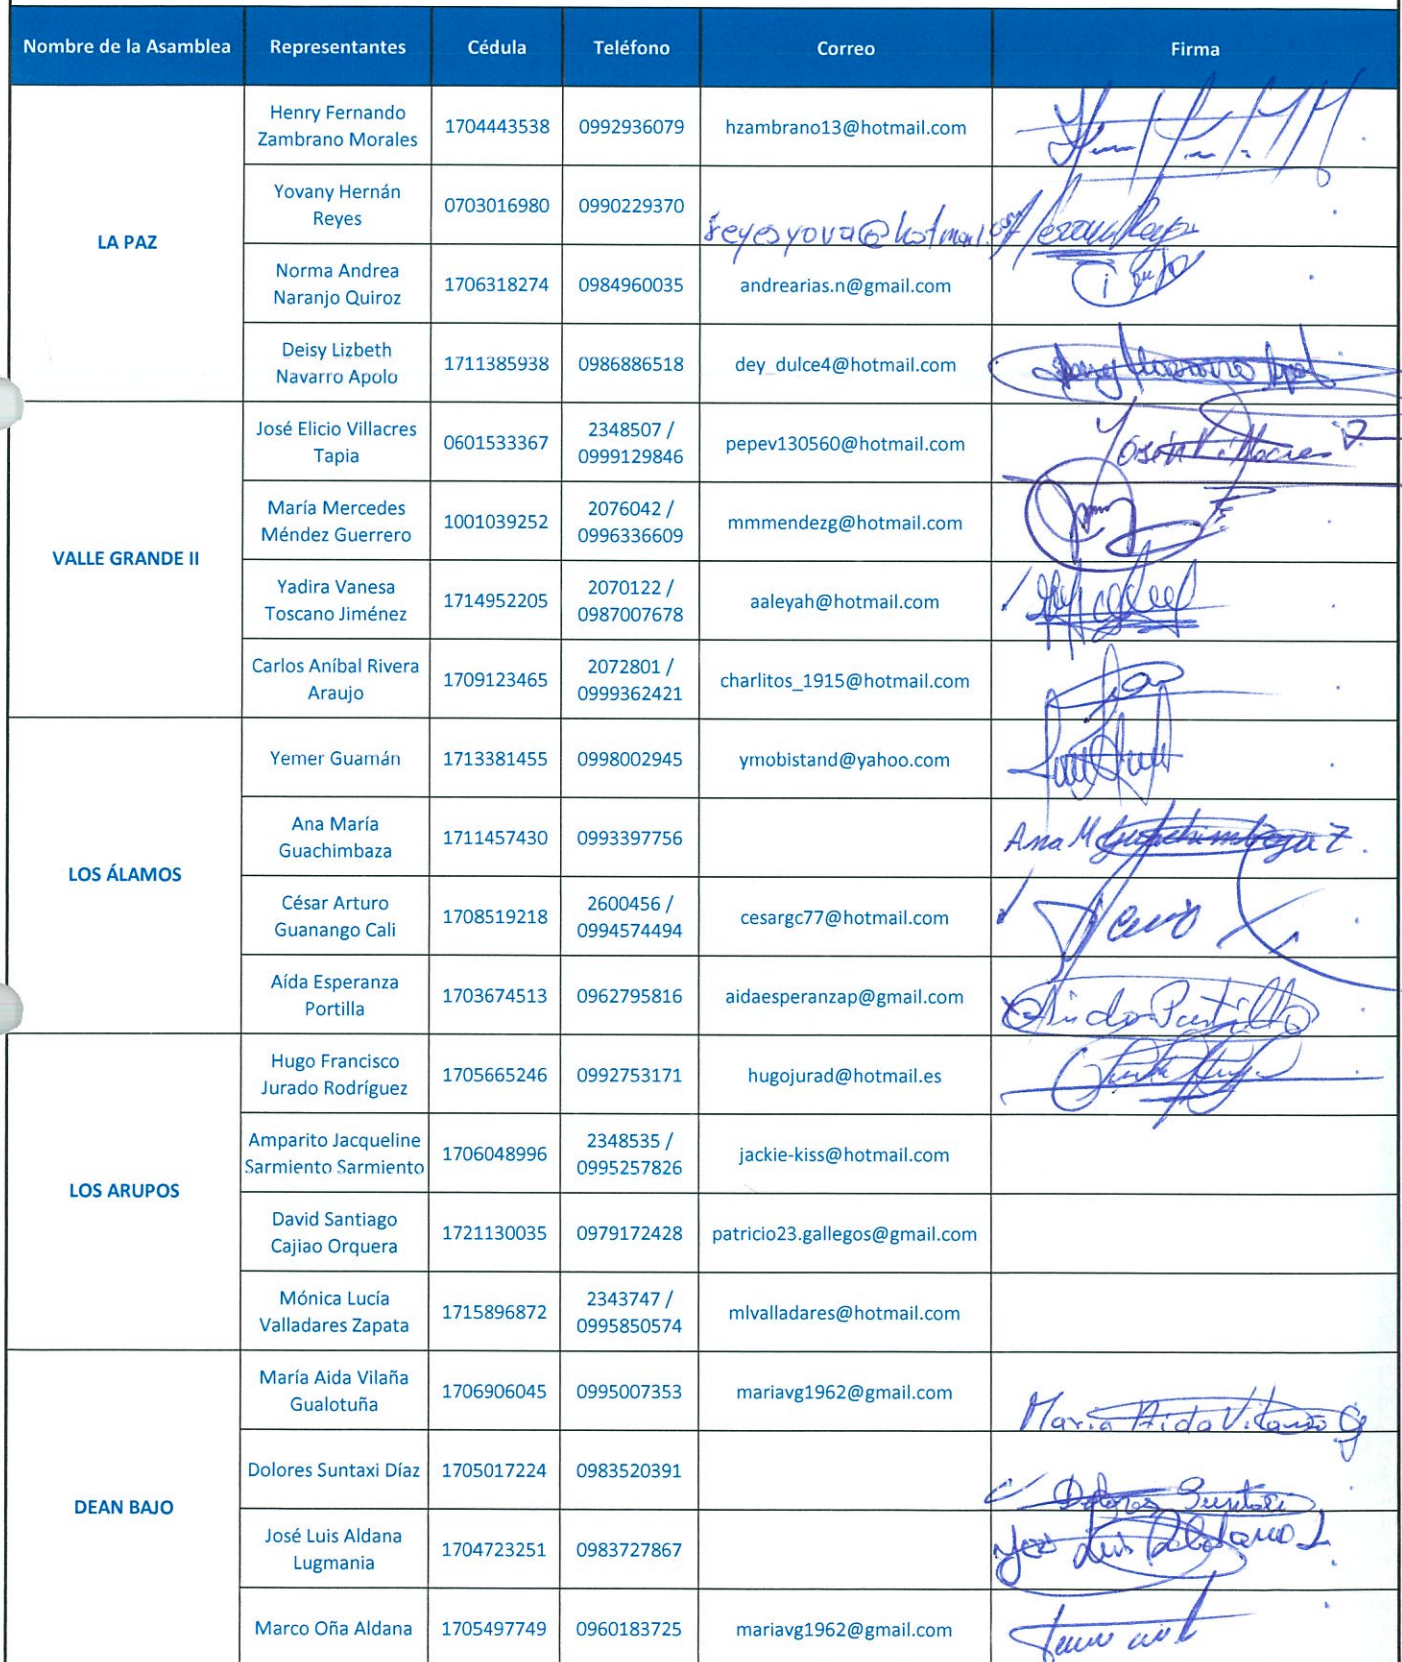 Nombre de la Asamblea Representantes Cédula Teléfono Correo Firma
LA PAZ
Henry Fernando
Zambrano Morales 1704443538 0992936079 hzambrano13@hotmail.com
Yovany Hernán
Reyes 0703016980 0990229370 reyesyova@hotmail.com
Norma Andrea
Naranjo Quiroz 1706318274 0984960035 andrearias.n@gmail.com
Deisy Lizbeth
Navarro Apolo 1711385938 0986886518 dey_dulce4@hotmail.com
VALLE GRANDE II
José Elicio Villacres
Tapia 0601533367 2348507 /
0999129846 pepev130560@hotmail.com
María Mercedes
Méndez Guerrero 1001039252 2076042 /
0996336609 mmmendezg@hotmail.com
Yadira Vanesa
Toscano Jiménez 1714952205 2070122 /
0987007678 aaleyah@hotmail.com
Carlos Aníbal Rivera
Araujo 1709123465 2072801 /
0999362421 charlitos_1915@hotmail.com
LOS ÁLAMOS
Yemer Guamán 1713381455 0998002945 ymobistand@yahoo.com
Ana María
Guachimbaza 1711457430 0993397756 Ana M Guachimboza Z.
César Arturo
Guanango Cali 1708519218 2600456 /
0994574494 cesargc77@hotmail.com
Aída Esperanza
Portilla 1703674513 0962795816 aidaesperanzap@gmail.com Aida Portilla
LOS ARUPOS
Hugo Francisco
Jurado Rodríguez 1705665246 0992753171 hugojurad@hotmail.es
Amparito Jacqueline
Sarmiento Sarmiento 1706048996 2348535 /
0995257826 jackie-kiss@hotmail.com
David Santiago
Cajiao Orquera 1721130035 0979172428 patricio23.gallegos@gmail.com
Mónica Lucía
Valladares Zapata 1715896872 2343747 /
0995850574 mlvalladares@hotmail.com
DEAN BAJO
María Aida Vilaña
Gualotuña 1706906045 0995007353 mariavg1962@gmail.com Maria Aida Vilaña G
Dolores Suntaxi Díaz 1705017224 0983520391 Dolores Suntaxi
José Luis Aldana
Lugmania 1704723251 0983727867 Jose Luis
Marco Oña Aldana 1705497749 0960183725 mariavg1962@gmail.com